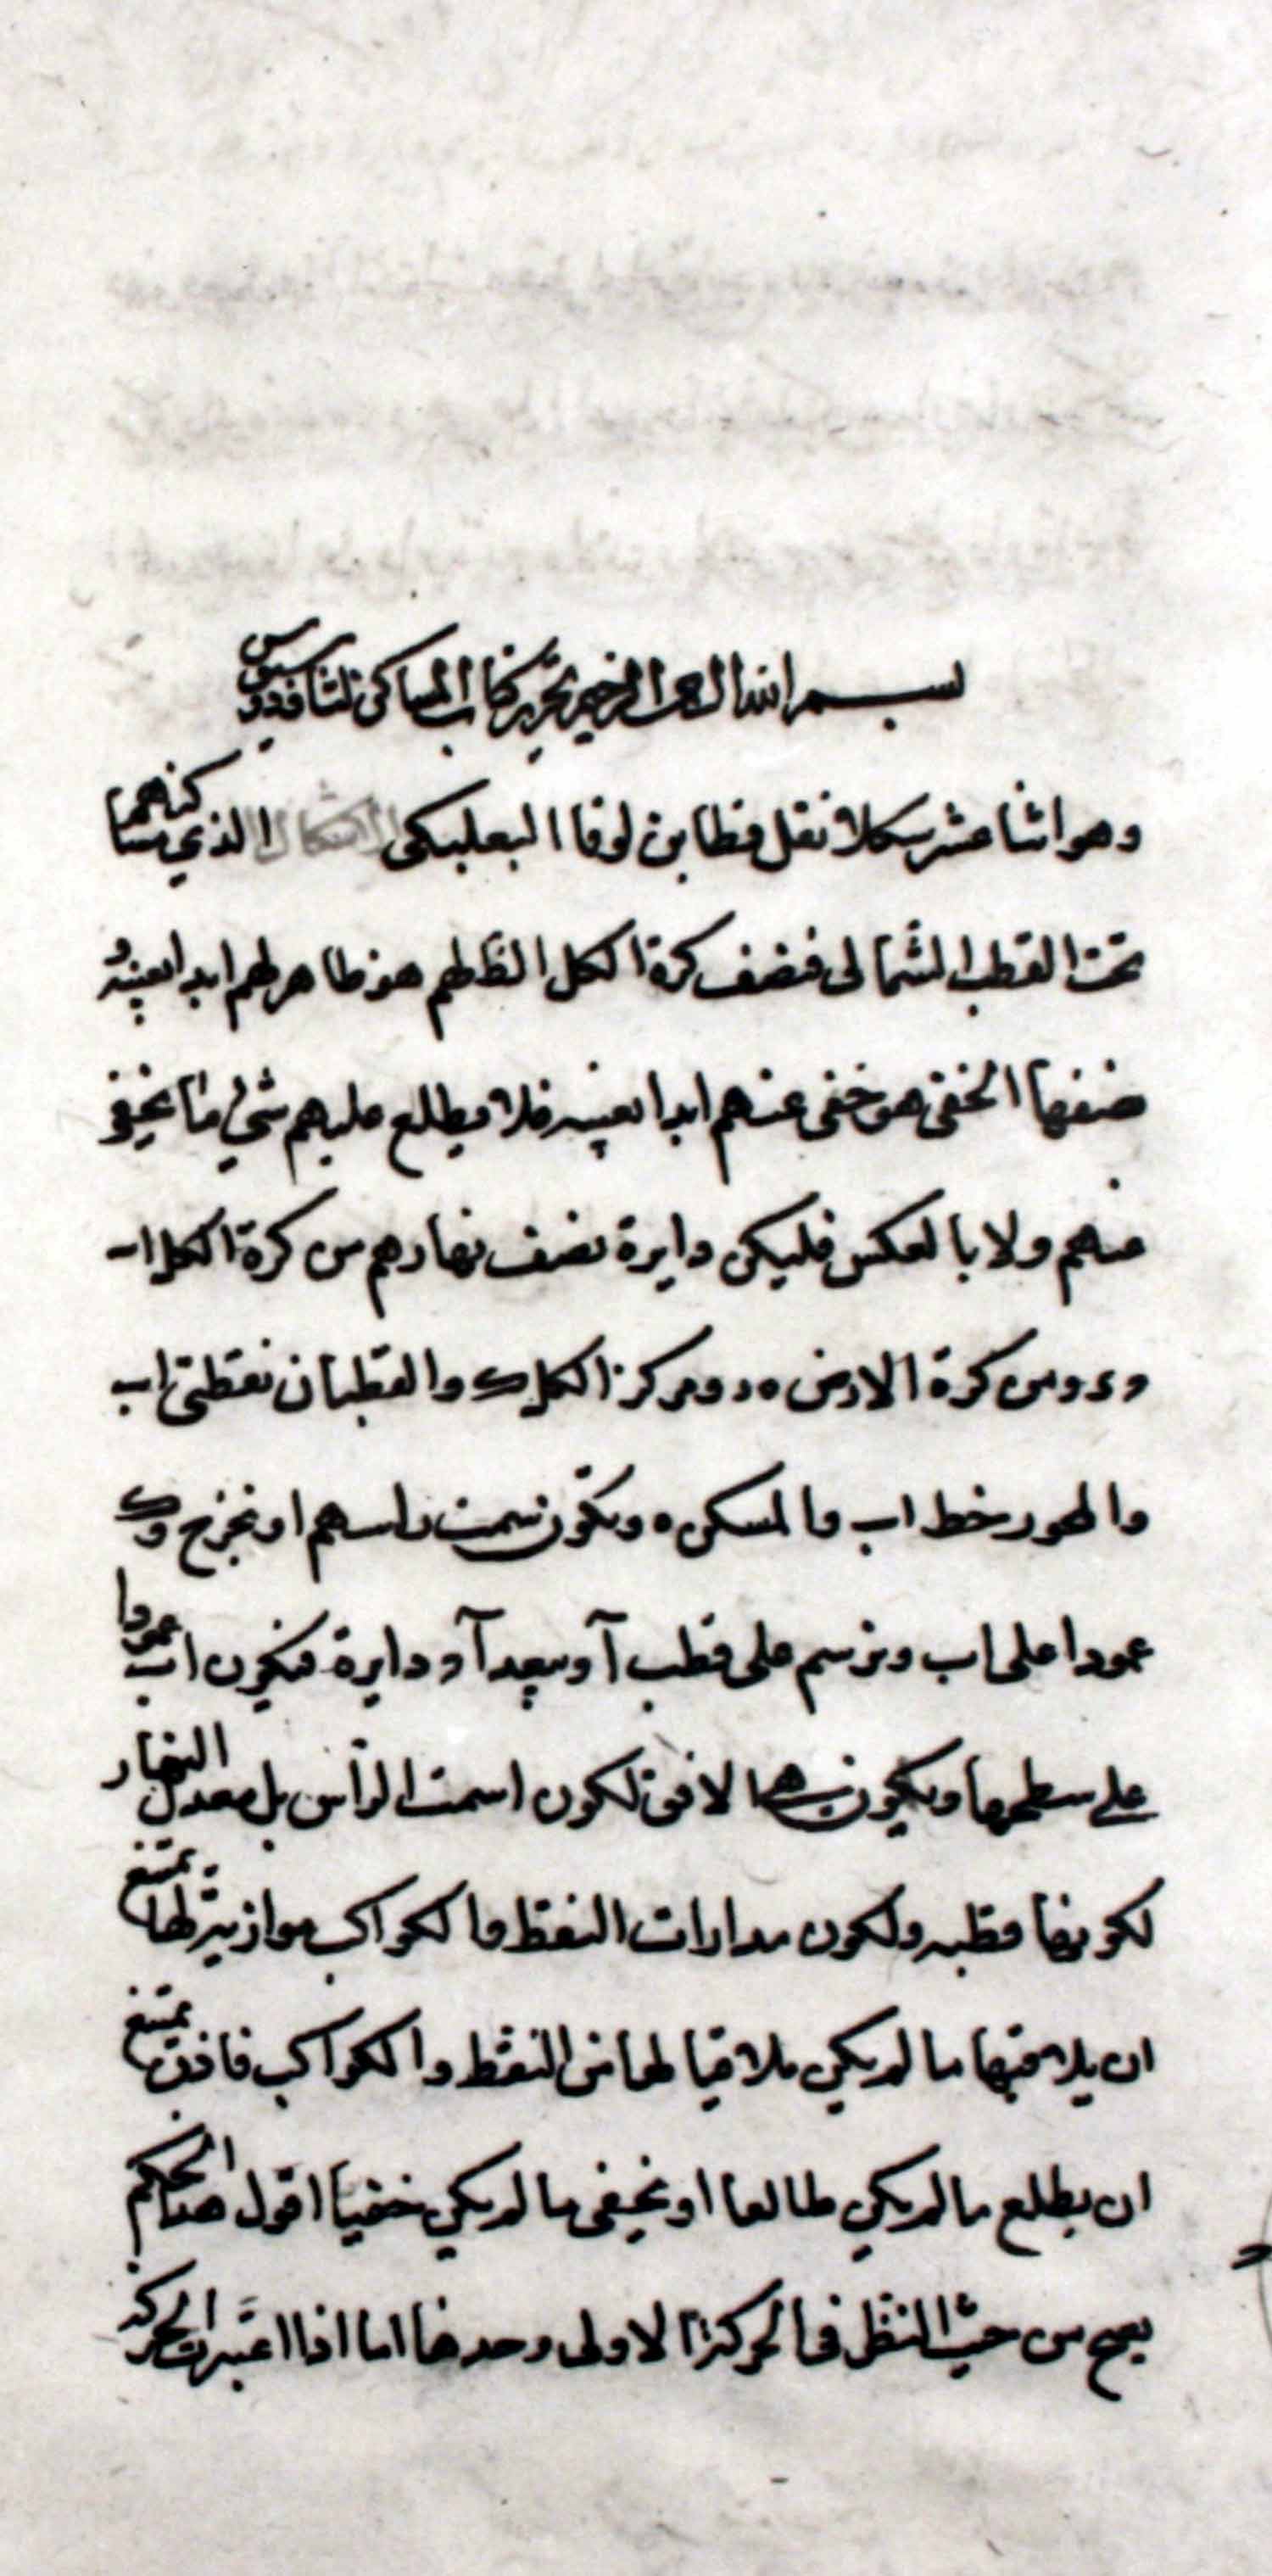 بسم الله الرحمن الرحيم تحرير كتاب المساكن لثاودوسيوس
وهو اثنا عشر شكلا نقل قسطا بن لوقا البعلبكى الاشكال الذي مساكنهم
تحت القطب الشمالى فنصف كرة الكل الظ لهم هو ظاهر لهم ابدا بعينه و
نصفها الخفى هو خفى عنهم ابدا بعينه فلا يطلع عليهم شئ مما يخفى
عنهم ولا بالعكس فليكن دايرة نصف نهارهم من كرة الكل ا ب
و من كرة الارض ه ومركز الكل ك والقطبان نقطتى اب
والمحور خط اب والمسكن ه ويكون سمت راسهم ا ونخرج
عمودا على اب ونرسم على قطب آ وببعد آ دايرة فيكون اب عمودا
على سطحها ويكون الافق لكون ا سمت الرأس بل معدل النهار
لكونها قطبه ولكون مدارات النقط والكواكب موازية لها يمتنع
ان يلاقيها ما لم يكن ملاقيا لها من النقط والكواكب فاذن يمتنع
ان يطلع ما لم يكن طالعا او يخفى ما لم يكن خفيا اقول هذا الحكم
يصح من حيث النظر فى الحركة الاولى وحدها اما اذا اعتبرت الحركة